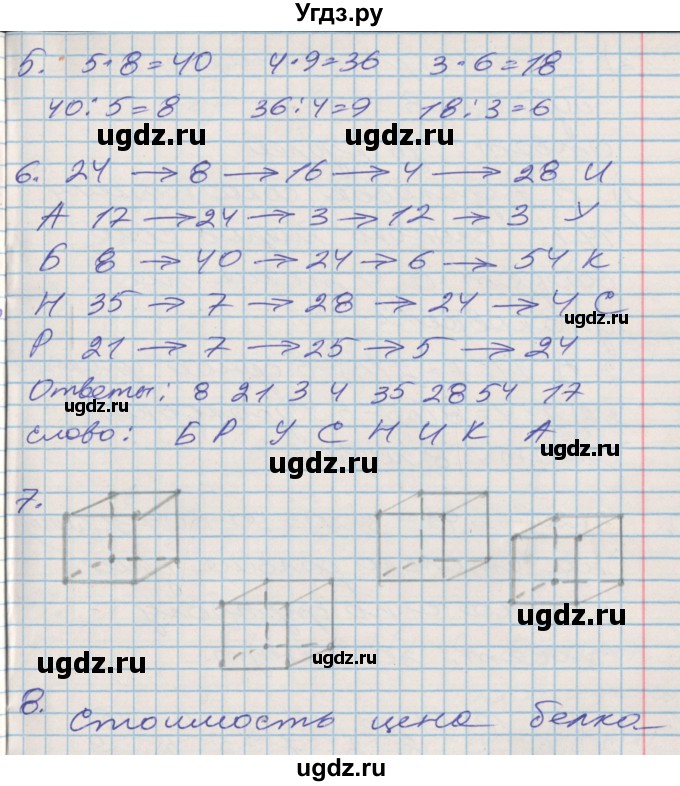 Угдз.ру
5. 5·8=40 4·9=36 3·6=18
40:5=8 36:4=9 18:3=6
ugdz.ru ugdz.ru
6. 24 → 8 → 16 → 4 → 28 И
А 17 → 24 → 3 → 12 → 3 У
Б 8 → 40 → 24 → 6 → 54 К
Н 35 → 7 → 28 → 24 → 4 С
ugdz.ru
Р 21 → 7 → 25 → 5 → 24
Ответы: 8 21 3 4 35 28 54 17
ugdz.ru
слово: Б Р У С Н И К А
ugdz.ru
7.
ugdz.ru
ugdz.ru ugdz.ru
8. Стоимость цена белка
ugdz.ru